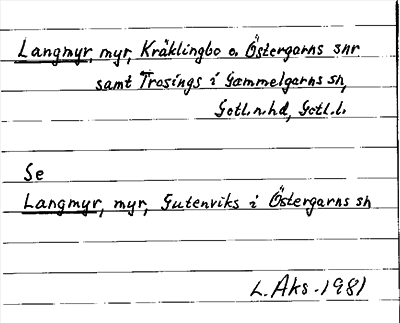 Langmyr, myr, Kräklingbo o. Östergarns snr
samt Trosings i Gammelgarns sn,
Gotl.n.hd, Gotl.l.
Se
Langmyr, myr, Gutenviks i Östergarns sn
L. Aks. 1981